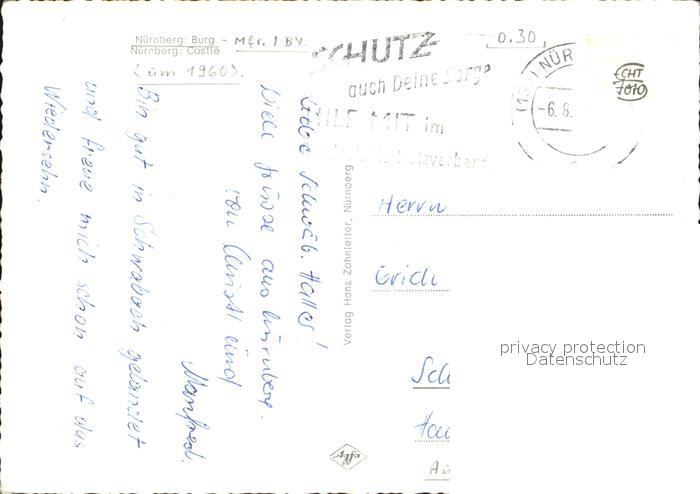 Nürnberg: Burg - Mfr. / BY.
Nürnberg: Castle
(um 1960).
0.30,
SCHUTZ
auch Deine Sorge
HILF MIT im
NÜR
-6.8.
ECHT
FOTO
Liebe Schwäb. Haller!
Viele Grüsse aus Nürnberg.
von Christl und
Manfred.
Bin gut in Schwabach gelandet
und freue mich schon auf das
Wiedersehn.
Verlag Hans Zahnleiter, Nürnberg
Herrn
Erich
Agfa
privacy protection
Datenschutz